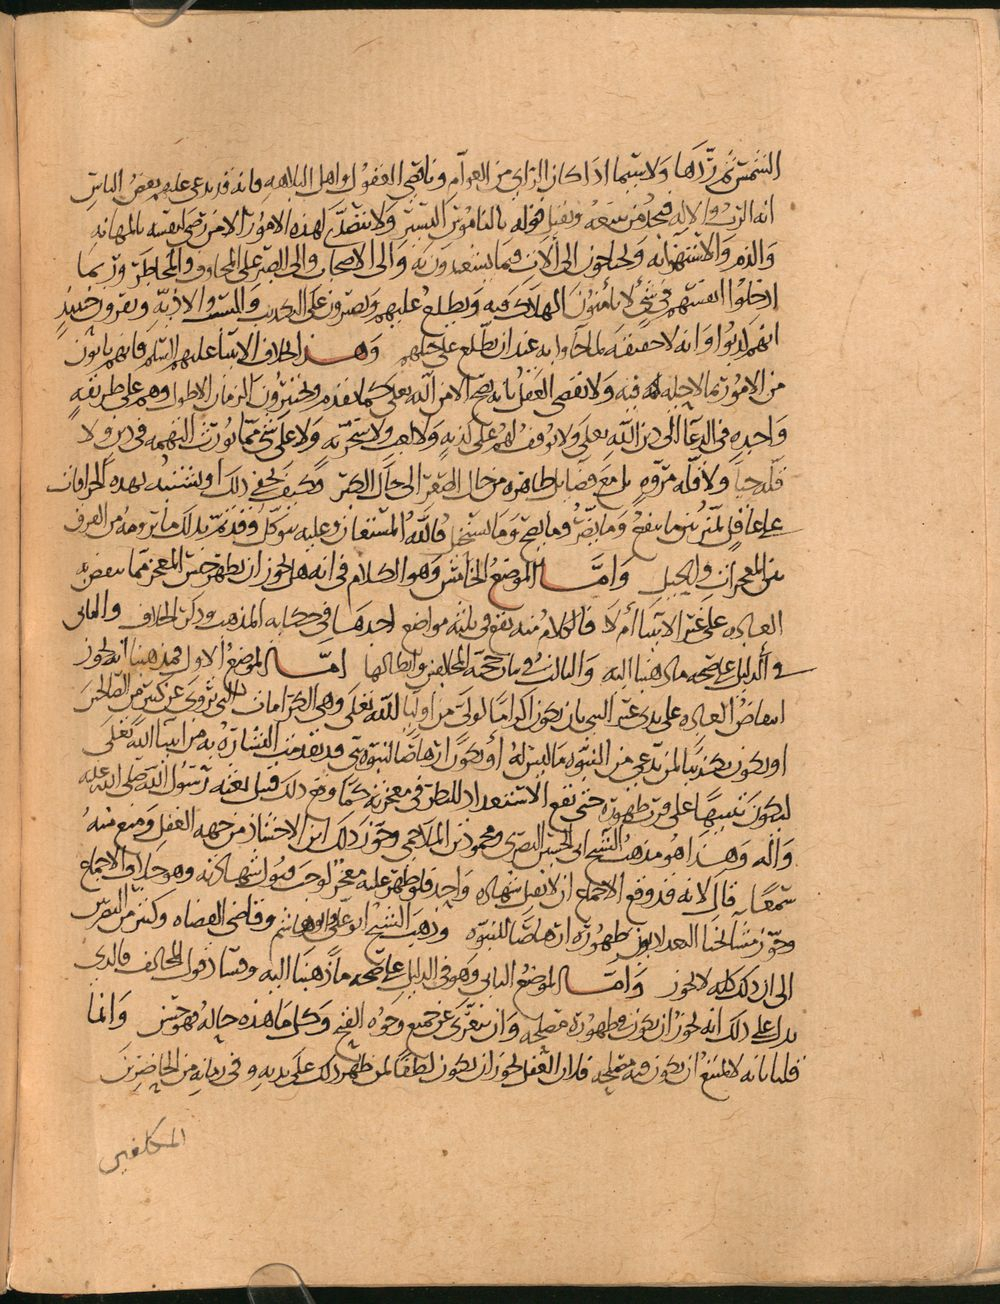 الشمس ثم ردها ولا سيما اذا كان الراي من العوام وناقصي العقول واهل البلاهه فانه قد يدعي عليهم بعض الناس
انه الرب والاله فيجد من يتبعه ويقبل قوله بالناموس اليسير ولا يتصدى لهذه الامور الا من رضي لنفسه بالمهانه
والذم والاستهزا به ويحتاجون الى الآلات فيما يتعبدون به والى الاصحاب والى الصبر على المخاوف والمخاطر وربما
ادخلوا انفسهم في شي لا يامنون الهلاك فيه ويطلع عليهم ويصبرون على التكذيب والسب والاذيه ويقرون حينيذ
انهم كذبوا وانه لا حقيقه لما جاوا به عند ان يطلع على حيلهم وهذا بخلاف الانبيا عليهم السلم فانهم ياتون
من الامور بما لا حيله فيه ولا يقضي العقل بانه يصح الا من الله تعلى كما تقدم ويختبرون الزمان الاطول وهم على طريقه
واحده في الدعا الى دين الله تعلى ولا يوقف لهم على كذبه ولا لعب ولا سخريه ولا على شي مما يورث التهمه في دين ولا
قله حيا ولا قله مروه بل مع فضايل طاهره من حال الصغر الى حال الكبر وكيف يخفى ذلك او يشتبه بهذه الخرافات
على عاقل يميز بين ما ينفع وما يضر وما يصح وما يستحيل فالله المستعان وعليه نتوكل فقد تم بذلك ما نرومه من الفرق
بين المعجزات والحيل واما الموضع الخامس وهو الكلام في انه هل يجوز ان يظهر جنس المعجز مما ينقض به
العاده على غير الانبيا ام لا فالكلام منه يقع في ثلثه مواضع احدها في حكايه المذهب وذكر الخلاف والثاني
في الدليل على صحه ما ذهبنا اليه والثالث في بيان حجه المخالفين وابطالها اما الموضع الاول فمذهبنا انه يجوز
انتقاض العاده على يدي غير النبي بان يكون اكراما لولي من اوليا الله تعلى وهي الكرامات التي تروى عن كثير من الصالحين
او يكون تكذيبا لمن يدعي من النبوه ما ليس له او يكون ارهاصا لنبوه نبي قد تقدمت البشاره به من انبيا الله تعلى
ليكون تنبيها على قرب ظهوره حتى يقع الاستعداد للنظر في معجزته كما وقع ذلك قبل بعثه رسول الله صلى الله عليه
واله وهذا هو مذهب الشيخ ابي الحسين البصري ومحمود بن الملاحمي وجوز ذلك ابن الاخشاذ من جهه العقل ومنع منه
سمعا قال لانه قد وقع الاجماع ان لا تقبل شهاده واحد فلو ظهر عليه معجز لوجب قبول شهادته وهو خلاف الاجماع
وجوز مشايخنا البغداديون ظهوره ارهاصا للنبوه وذهب الشيخ ابو علي وابو هاشم وقاضي القضاه وكثير من البصريين
الى ان ذلك كله لا يجوز واما الموضع الثاني وهو في الدليل على صحه ما ذهبنا اليه وفساد قول المخالف فالذي
يدل على ذلك انه يجوز ان يكون في ظهوره مصلحه وان يتعرى عن جميع وجوه القبح وكل ما هذه حاله فهو حسن وانما
قلنا بانه لا يمتنع ان يكون فيه مصلحه فلان العقل يجوز ان يكون لطفا لمن ظهر ذلك على يديه وفي زمانه من الحاضرين
المكلفين